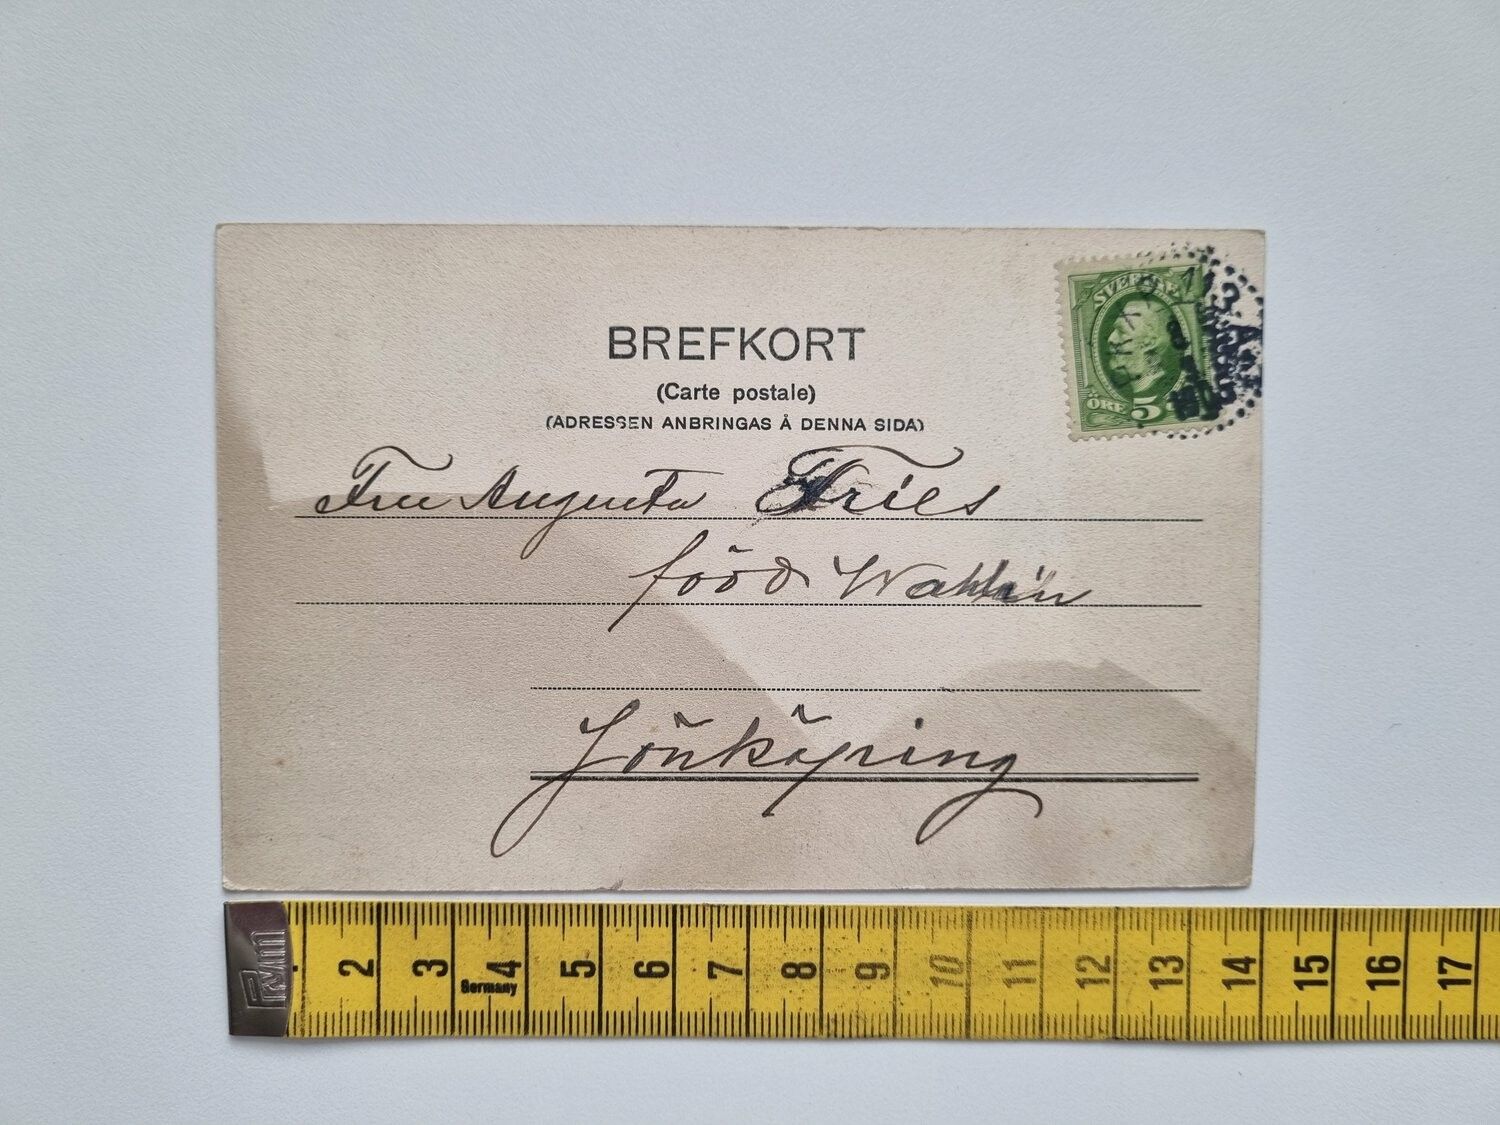 BREFKORT
(Carte postale)
(ADRESSEN ANBRINGAS Å DENNA SIDA)
SVERIGE
ÖRE 5
Fru Augusta Fries
född Wahlin
Jönköping
Prym
2 3 4 5 6 7 8 9 10 11 12 13 14 15 16 17
Germany